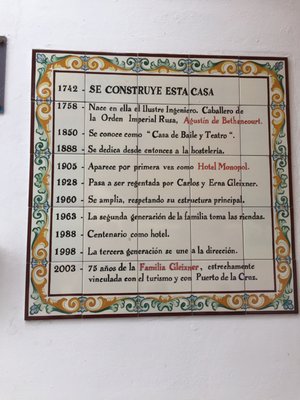 1742 - SE CONSTRUYE ESTA CASA
1758 - Nace en ella el Ilustre Ingeniero. Caballero de
la Orden Imperial Rusa, Agustín de Bethencourt.
1850 - Se conoce como "Casa de Baile y Teatro".
1888 - Se dedica desde entonces a la hostelería.
1905 - Aparece por primera vez como Hotel Monopol.
1928 - Pasa a ser regentada por Carlos y Erna Gleixner.
1960 - Se amplia, respetando su estructura principal.
1963 - La segunda generación de la familia toma las riendas.
1988 - Centenario como hotel.
1998 - La tercera generación se une a la dirección.
2003 - 75 años de la Familia Gleixner, estrechamente
vinculada con el turismo y con Puerto de la Cruz.